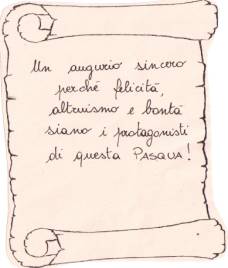 Un augurio sincero
perché felicità,
altruismo e bontà
siano i protagonisti
di questa PASQUA!